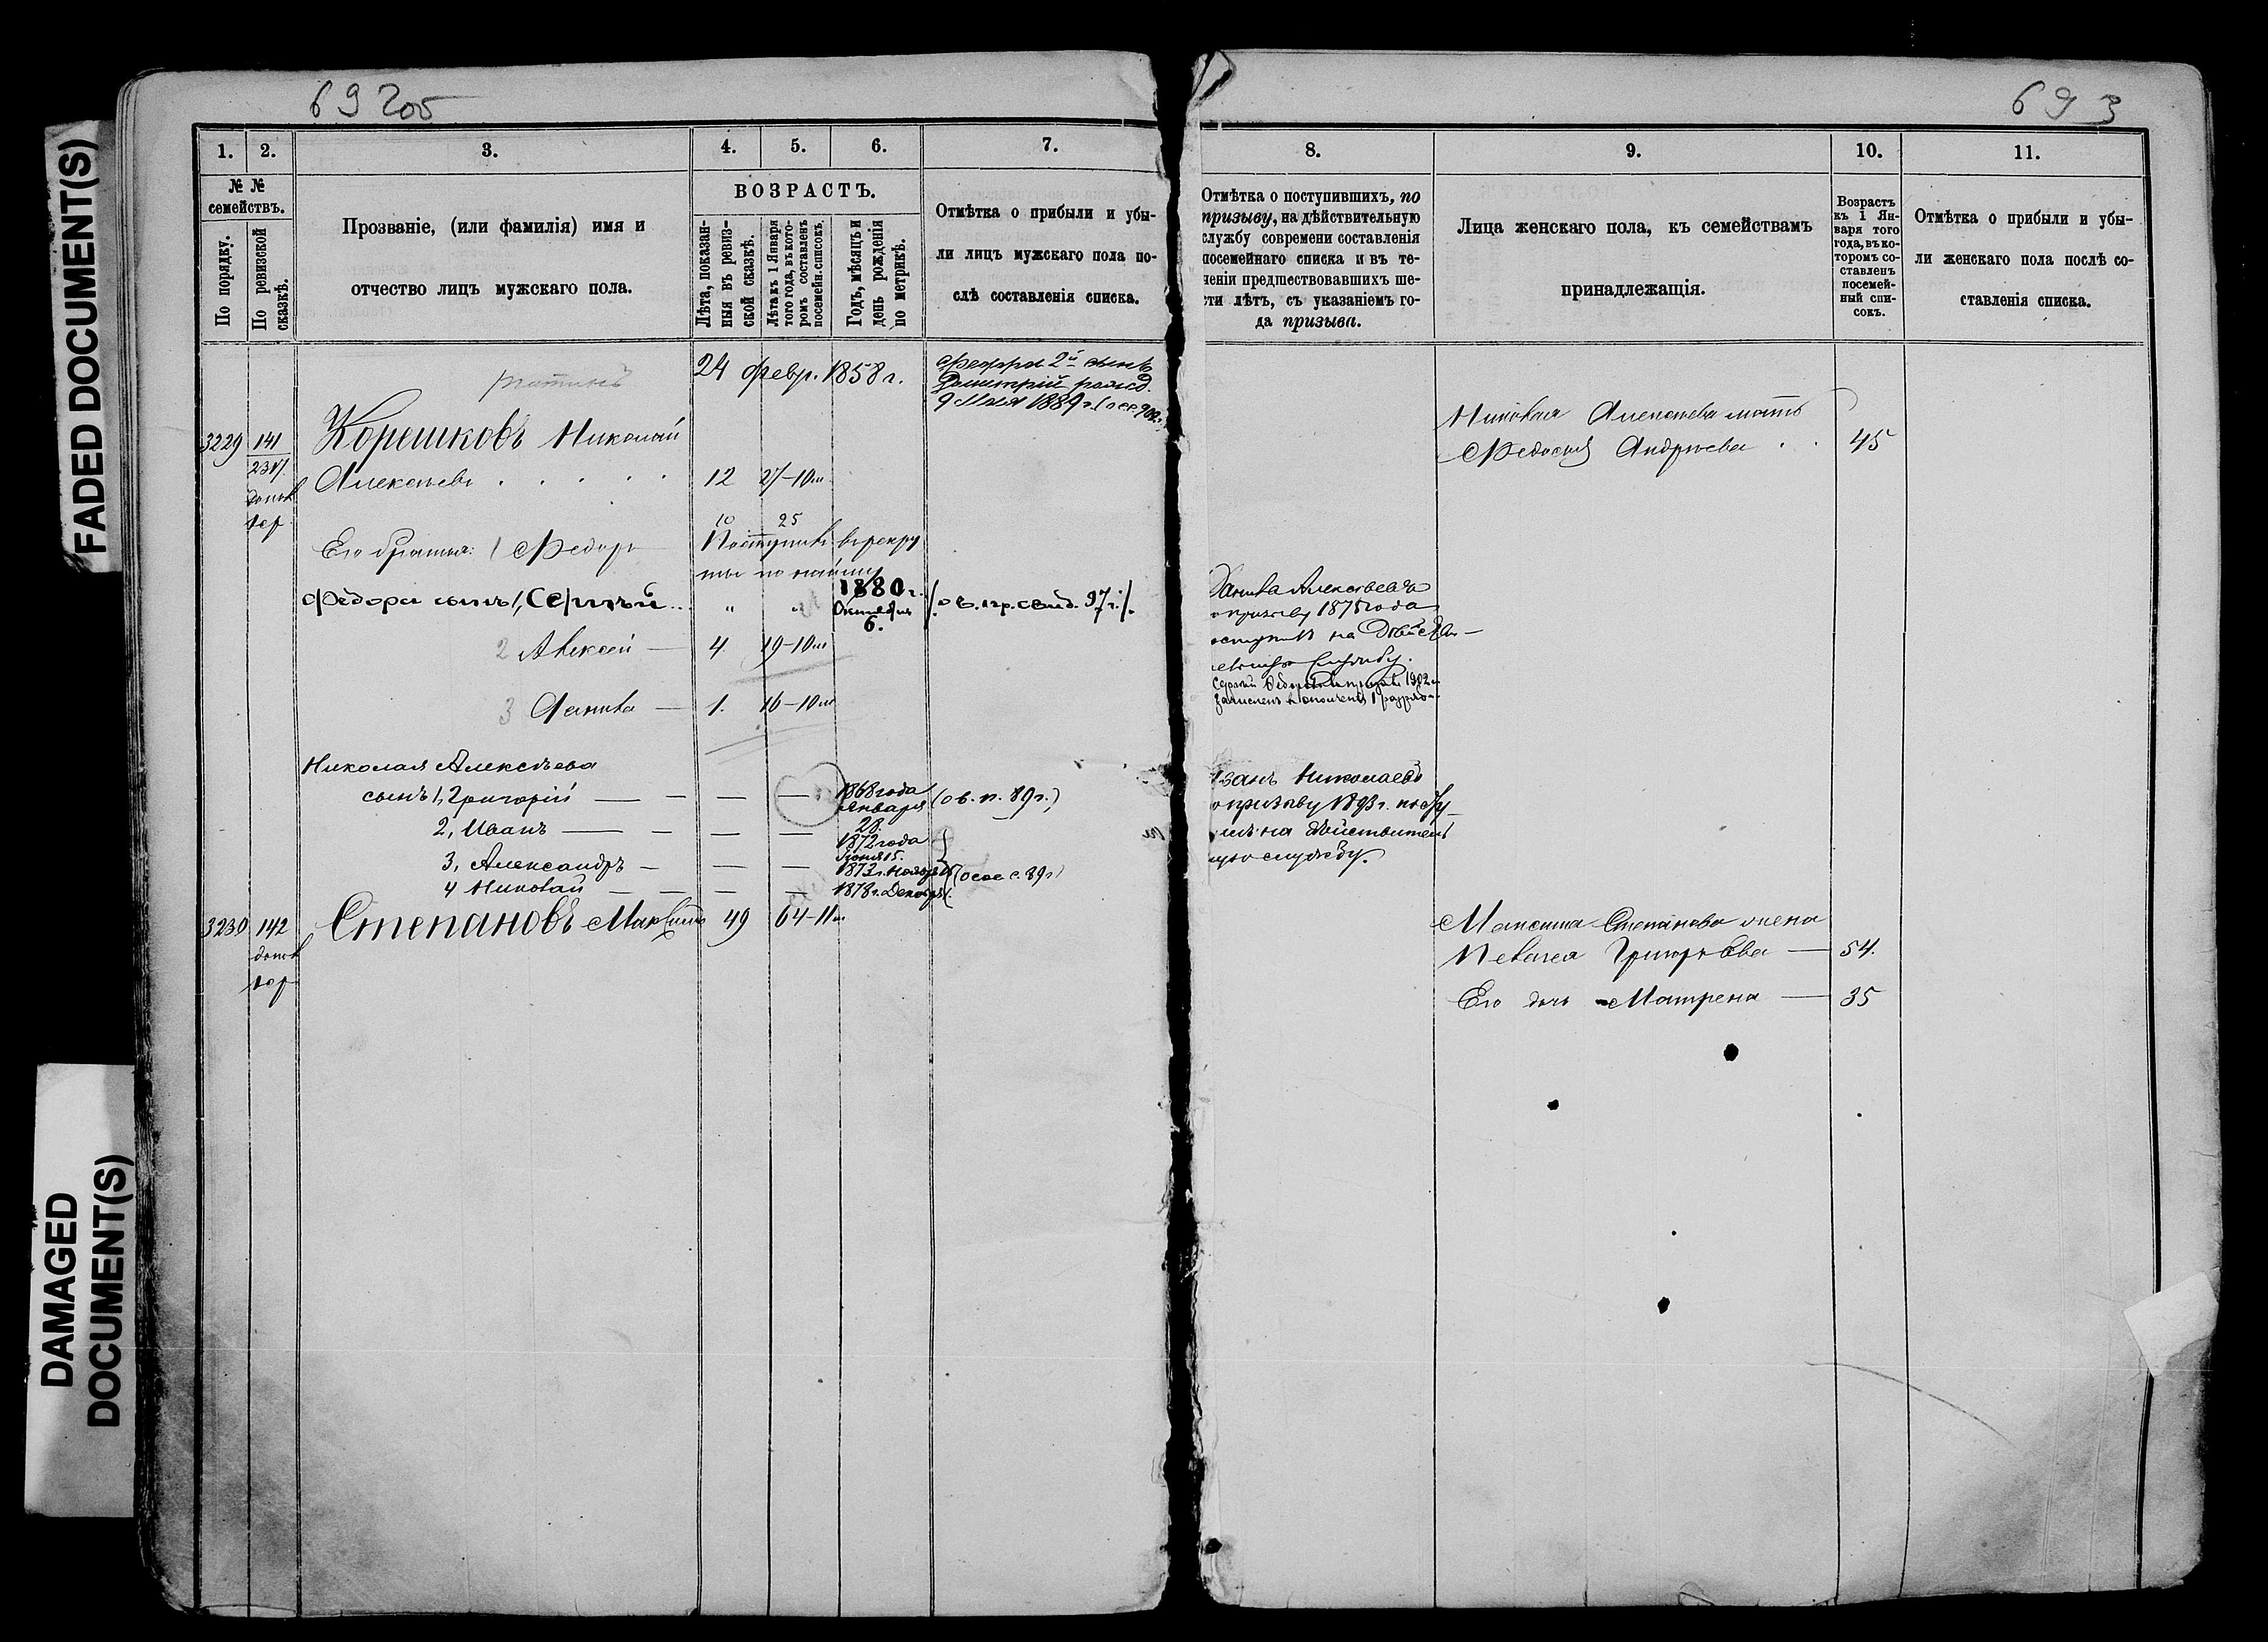 FADED DOCUMENT(S)
DAMAGED
DOCUMENT(S)
69 2об
1. 2. 3. 4. 5. 6. 7.
№ №
семействъ.
По порядку.
По ревизской
сказкѣ.
Прозваніе, (или фамилія) имя и
отчество лицъ мужскаго пола.
ВОЗРАСТЪ.
Лѣта, показан-
ныя въ ревиз-
ской сказкѣ.
Лѣта къ 1 Января
того года, въ кото-
ромъ составленъ
посемейн. списокъ.
Годъ, мѣсяцъ и
день рожденія
по метрикѣ.
Отмѣтка о прибыли и убы-
ли лицъ мужскаго пола по-
слѣ составленія списка.
24 февр. 1858 г.
2й сынъ
Димитрій рожд.
9 Мая 1889 г.
3229 141 Корешковъ Николай
Алексѣевъ 12 27-10м
10 25
Его братья: 1 Федоръ Поступилъ в рекру
ты по найму
Федора сынъ 1, Сергѣй 1880 г.
Октября
6.
ов. гр. свид. 97 г.
2 Алексѣй 4 19-10м
3 Данила 1. 16-10м
Николая Алексѣева
сынъ 1, Григорій — 1868 года
Января
28.
(ов. п. 89 г.)
2, Иванъ — 1872 года
Іюня 15.
3, Александръ — 1873 г.
4 Николай — 1878 г.
3230 142 Степановъ Максимъ 49 64-11м
693
8. 9. 10. 11.
Отмѣтка о поступившихъ, по
призыву, на дѣйствительную
службу современи составленія
посемейнаго списка и въ те-
ченіи предшествовавшихъ ше-
сти лѣтъ, съ указаніемъ го-
да призыва.
Лица женскаго пола, къ семействамъ
принадлежащія.
Возрастъ
къ 1 Ян-
варя того
года, въ ко-
торомъ со-
ставленъ
посемей-
ный спи-
сокъ.
Отмѣтка о прибыли и убы-
ли женскаго пола послѣ со-
ставленія списка.
Николая Алексѣева мать
Федосья Андреева 45
Данила Алексѣевъ
призыву 187 года
на Дѣйстви-
службу.
Иванъ Николаевъ
призыву 1893 г. посту-
на дѣйствитель
ную службу.
Максима Степанова жена
Пелагея Григорьева — 54.
Его дочь Матрена — 35